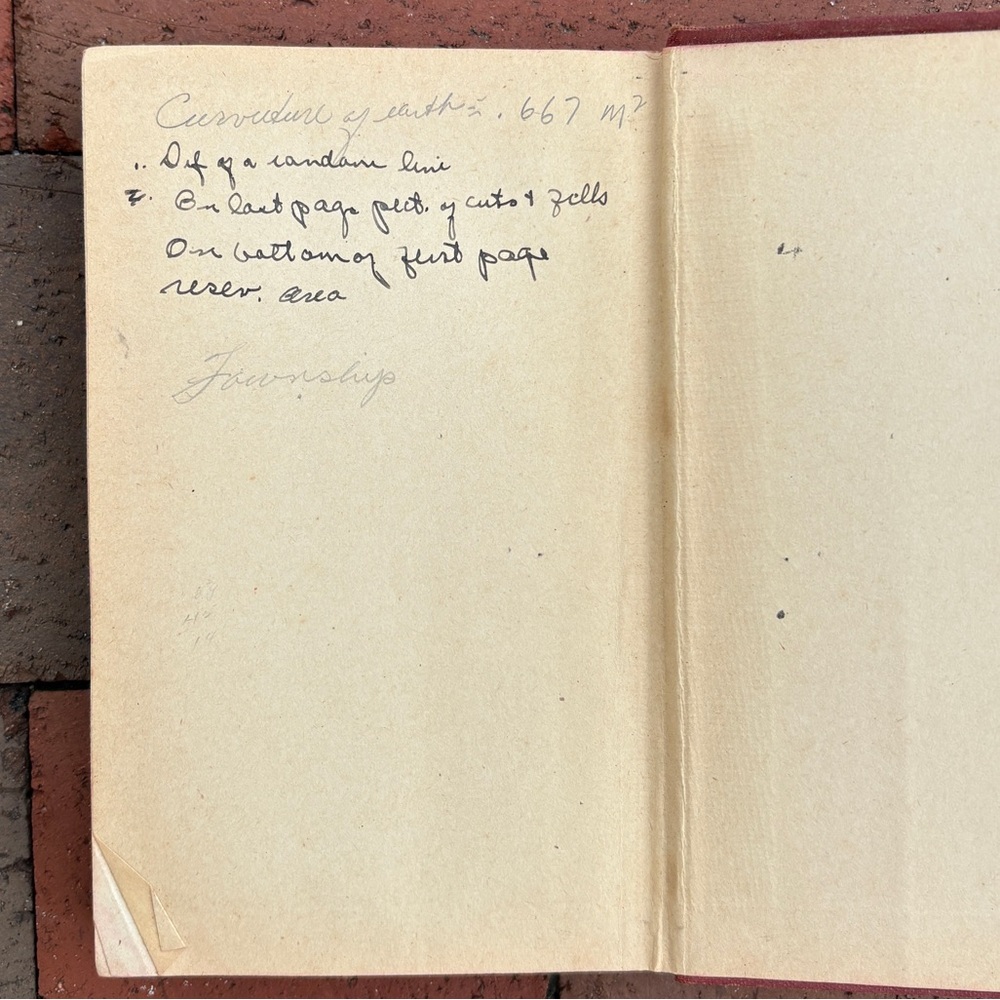 Curvature of earth = .667 M²
1. Def of a random line
2. On last page pict. of cuts & fills
On bottom of first page
reserv. area
Township